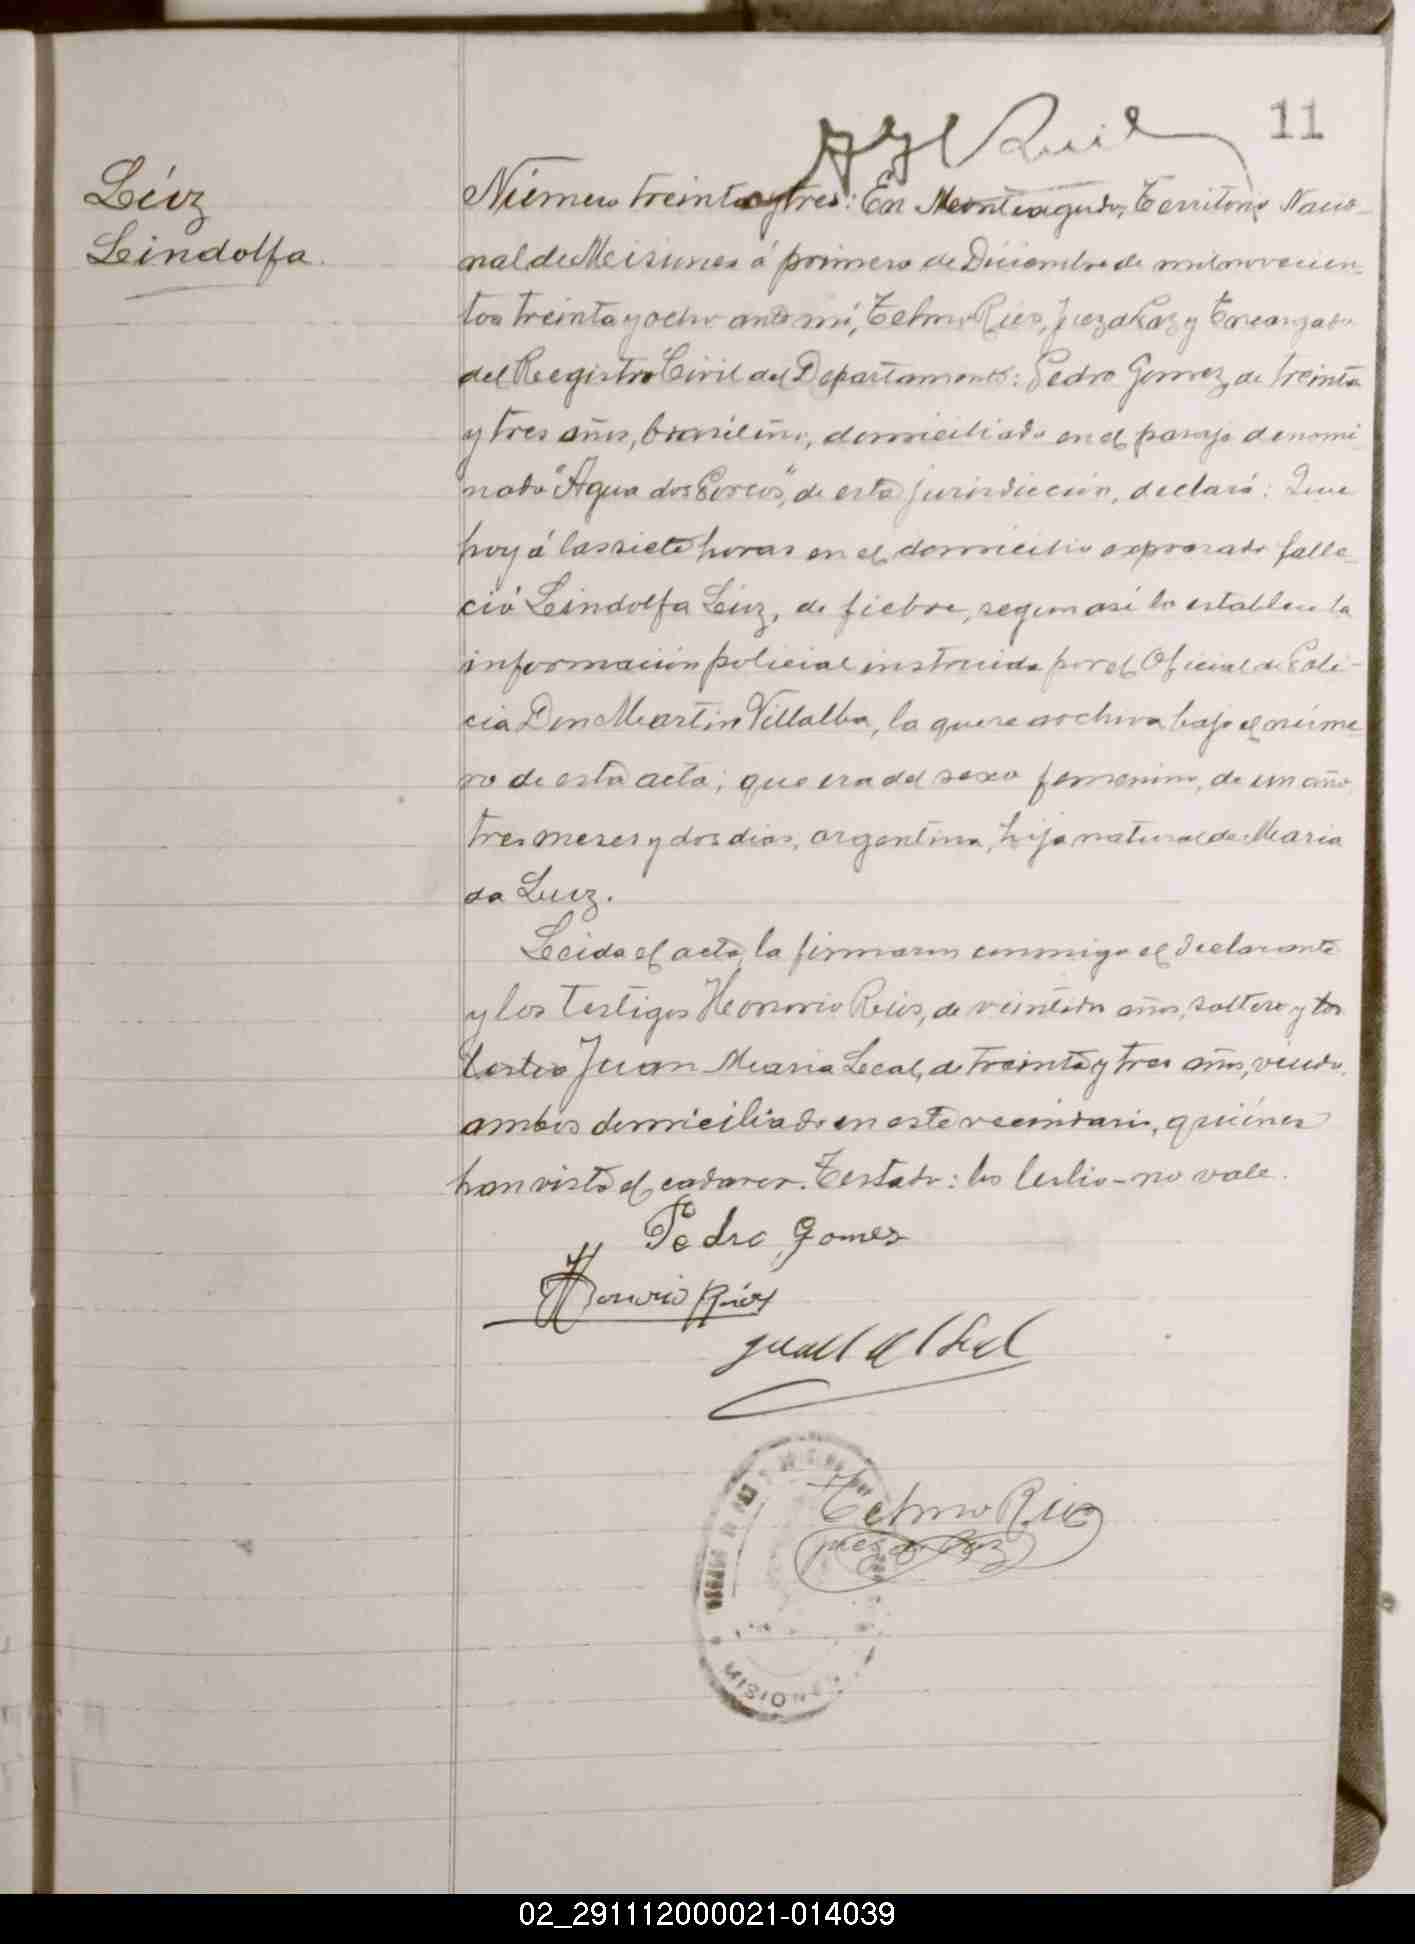 11
Lúiz
Lindolfa.
Número treinta y tres: En Monteagudo, Territorio Nacio-
nal de Misiones á primero de Diciembre de mil novecien-
tos treinta y ocho ante mí, Telmo Rios, Juez de Paz y Encargado
del Registro Civil del Departamento: Pedro Gomez, de treinta
y tres años, brasileño, domiciliado en el paraje denomi-
nado "Agua dos Porcos", de esta jurisdicción, declaró: Que
hoy á las siete horas en el domicilio expresado falle-
ció Lindolfa Lúiz, de fiebre, segun asi lo establece la
información policial instruida por el Oficial de Poli-
cia Don Martin Villalba, la que se archiva bajo el núme
ro de esta acta; que era del sexo femenino, de un año
tres meses y dos dias, argentina, hija natural de Maria
da Luiz.
Leida el acta, la firmaron conmigo el declarante
y los testigos Honorio Rios, de veintidos años, soltero y los
Juan Maria Leal, de treinta y tres años, viudo,
ambos domiciliado en este vecindario, quiénes
han visto el cadaver. Testado: los - no vale.
Pedro Gomes
Honorio Rios
Telmo Rios
Juez de Paz
02_291112000021-014039